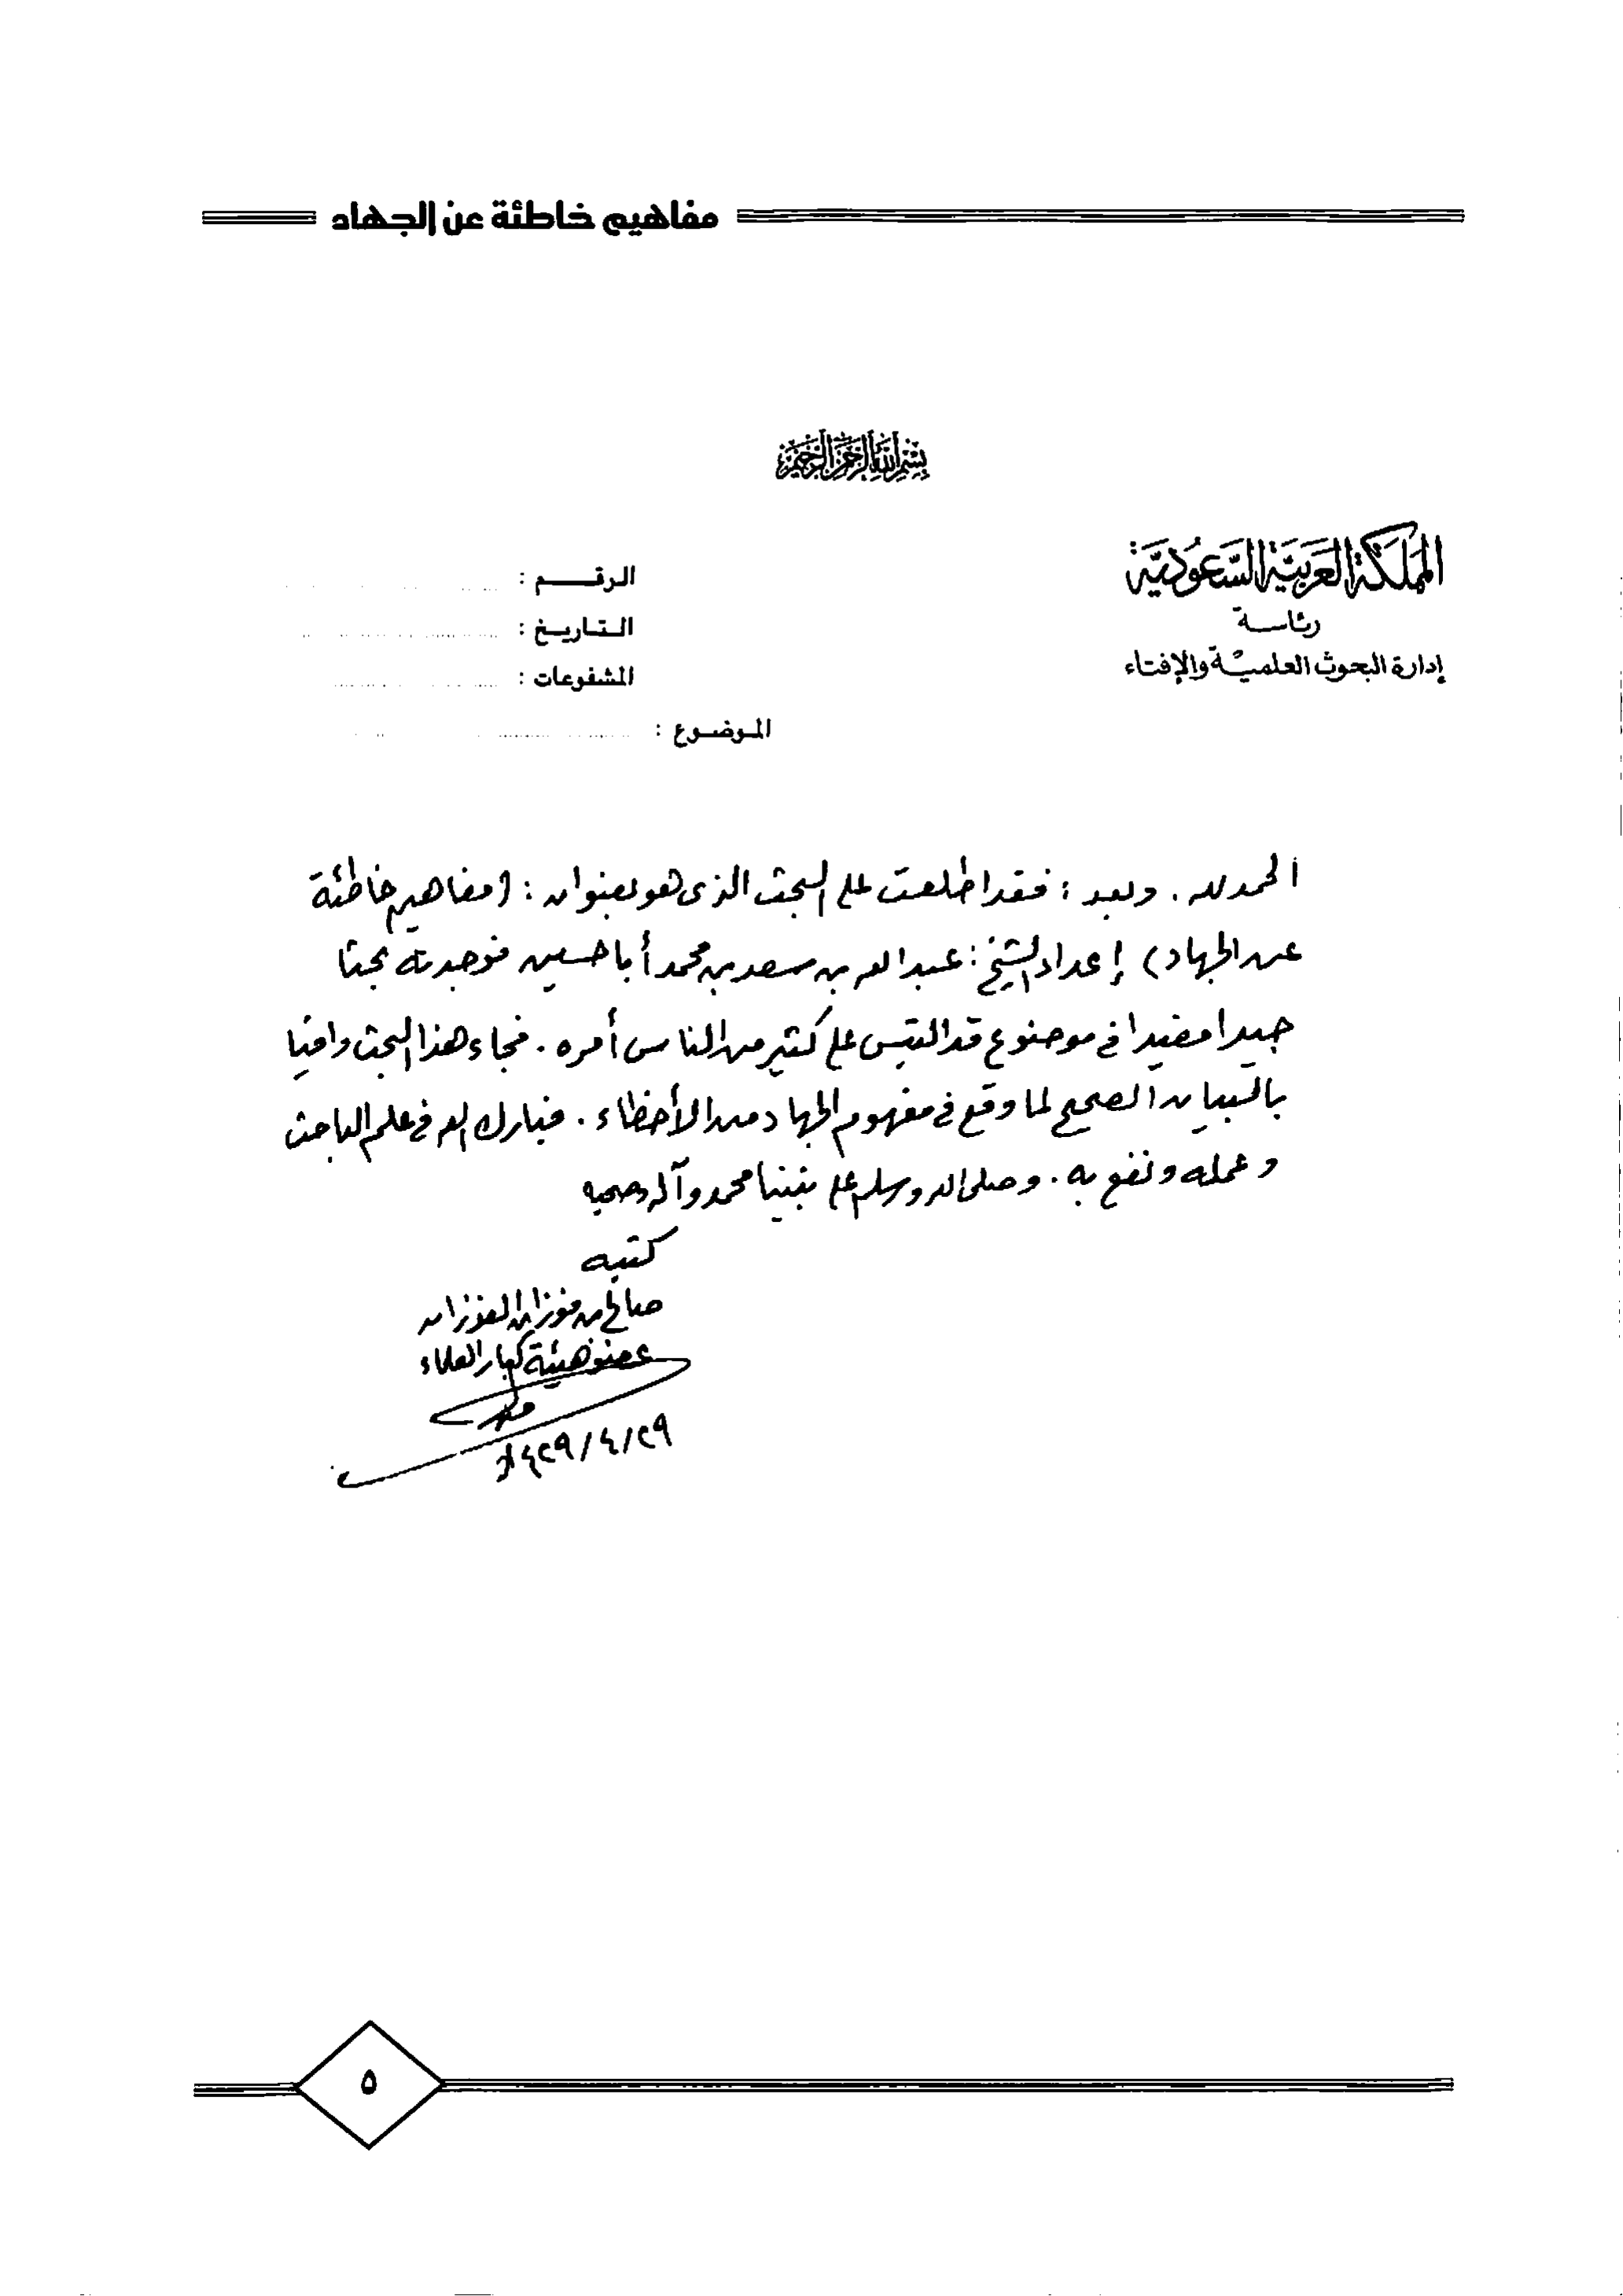 مفاهيم خاطئة عن الجهاد
بسم الله الرحمن الرحيم
المملكة العربية السعودية
رئاسة
إدارة البحوث العلمية والإفتاء
الرقم :
التاريخ :
المشفوعات :
الموضوع :
الحمد لله . وبعد : فقد اطلعت على البحث الذي هو بعنوان : (مفاهيم خاطئة
عن الجهاد) إعداد الشيخ : عبدالله بن سعد بن محمد أباحسين فوجدته بحثا
جيدا مفيدا في موضوع قد التبس على كثير من الناس أمره . فجاء هذا البحث وافيا
بالبيان الصحيح لما وقع في مفهوم الجهاد من الأخطاء . فبارك الله في علم الباحث
وعمله ونفع به . وصلى الله وسلم على نبينا محمد وآله وصحبه
كتبه
صالح بن فوزان الفوزان
عضو هيئة كبار العلماء
١٤٢٩/٤/٢٩هـ
٥